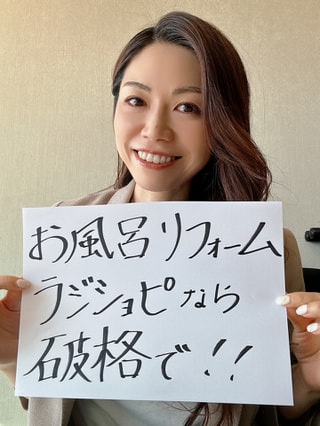 お風呂リフォーム
ラジショピなら
破格で!!